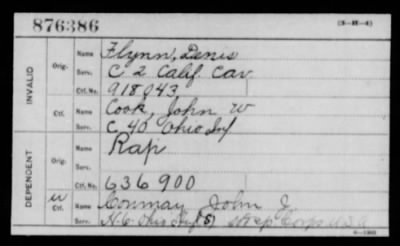 876386
(3-H-4)
INVALID
Orig. Name Flynn, Denis
Serv. C 2 Calif. Cav
Ctf. No. 918043
Ctf. Name Cook, John W
Serv. C 40 Ohio Inf
DEPENDENT
Orig. Name Rap
Serv.
Ctf. No. 636900
W Ctf. Name Conway John J.
Serv. H 6 Ohio Inf Corps USA